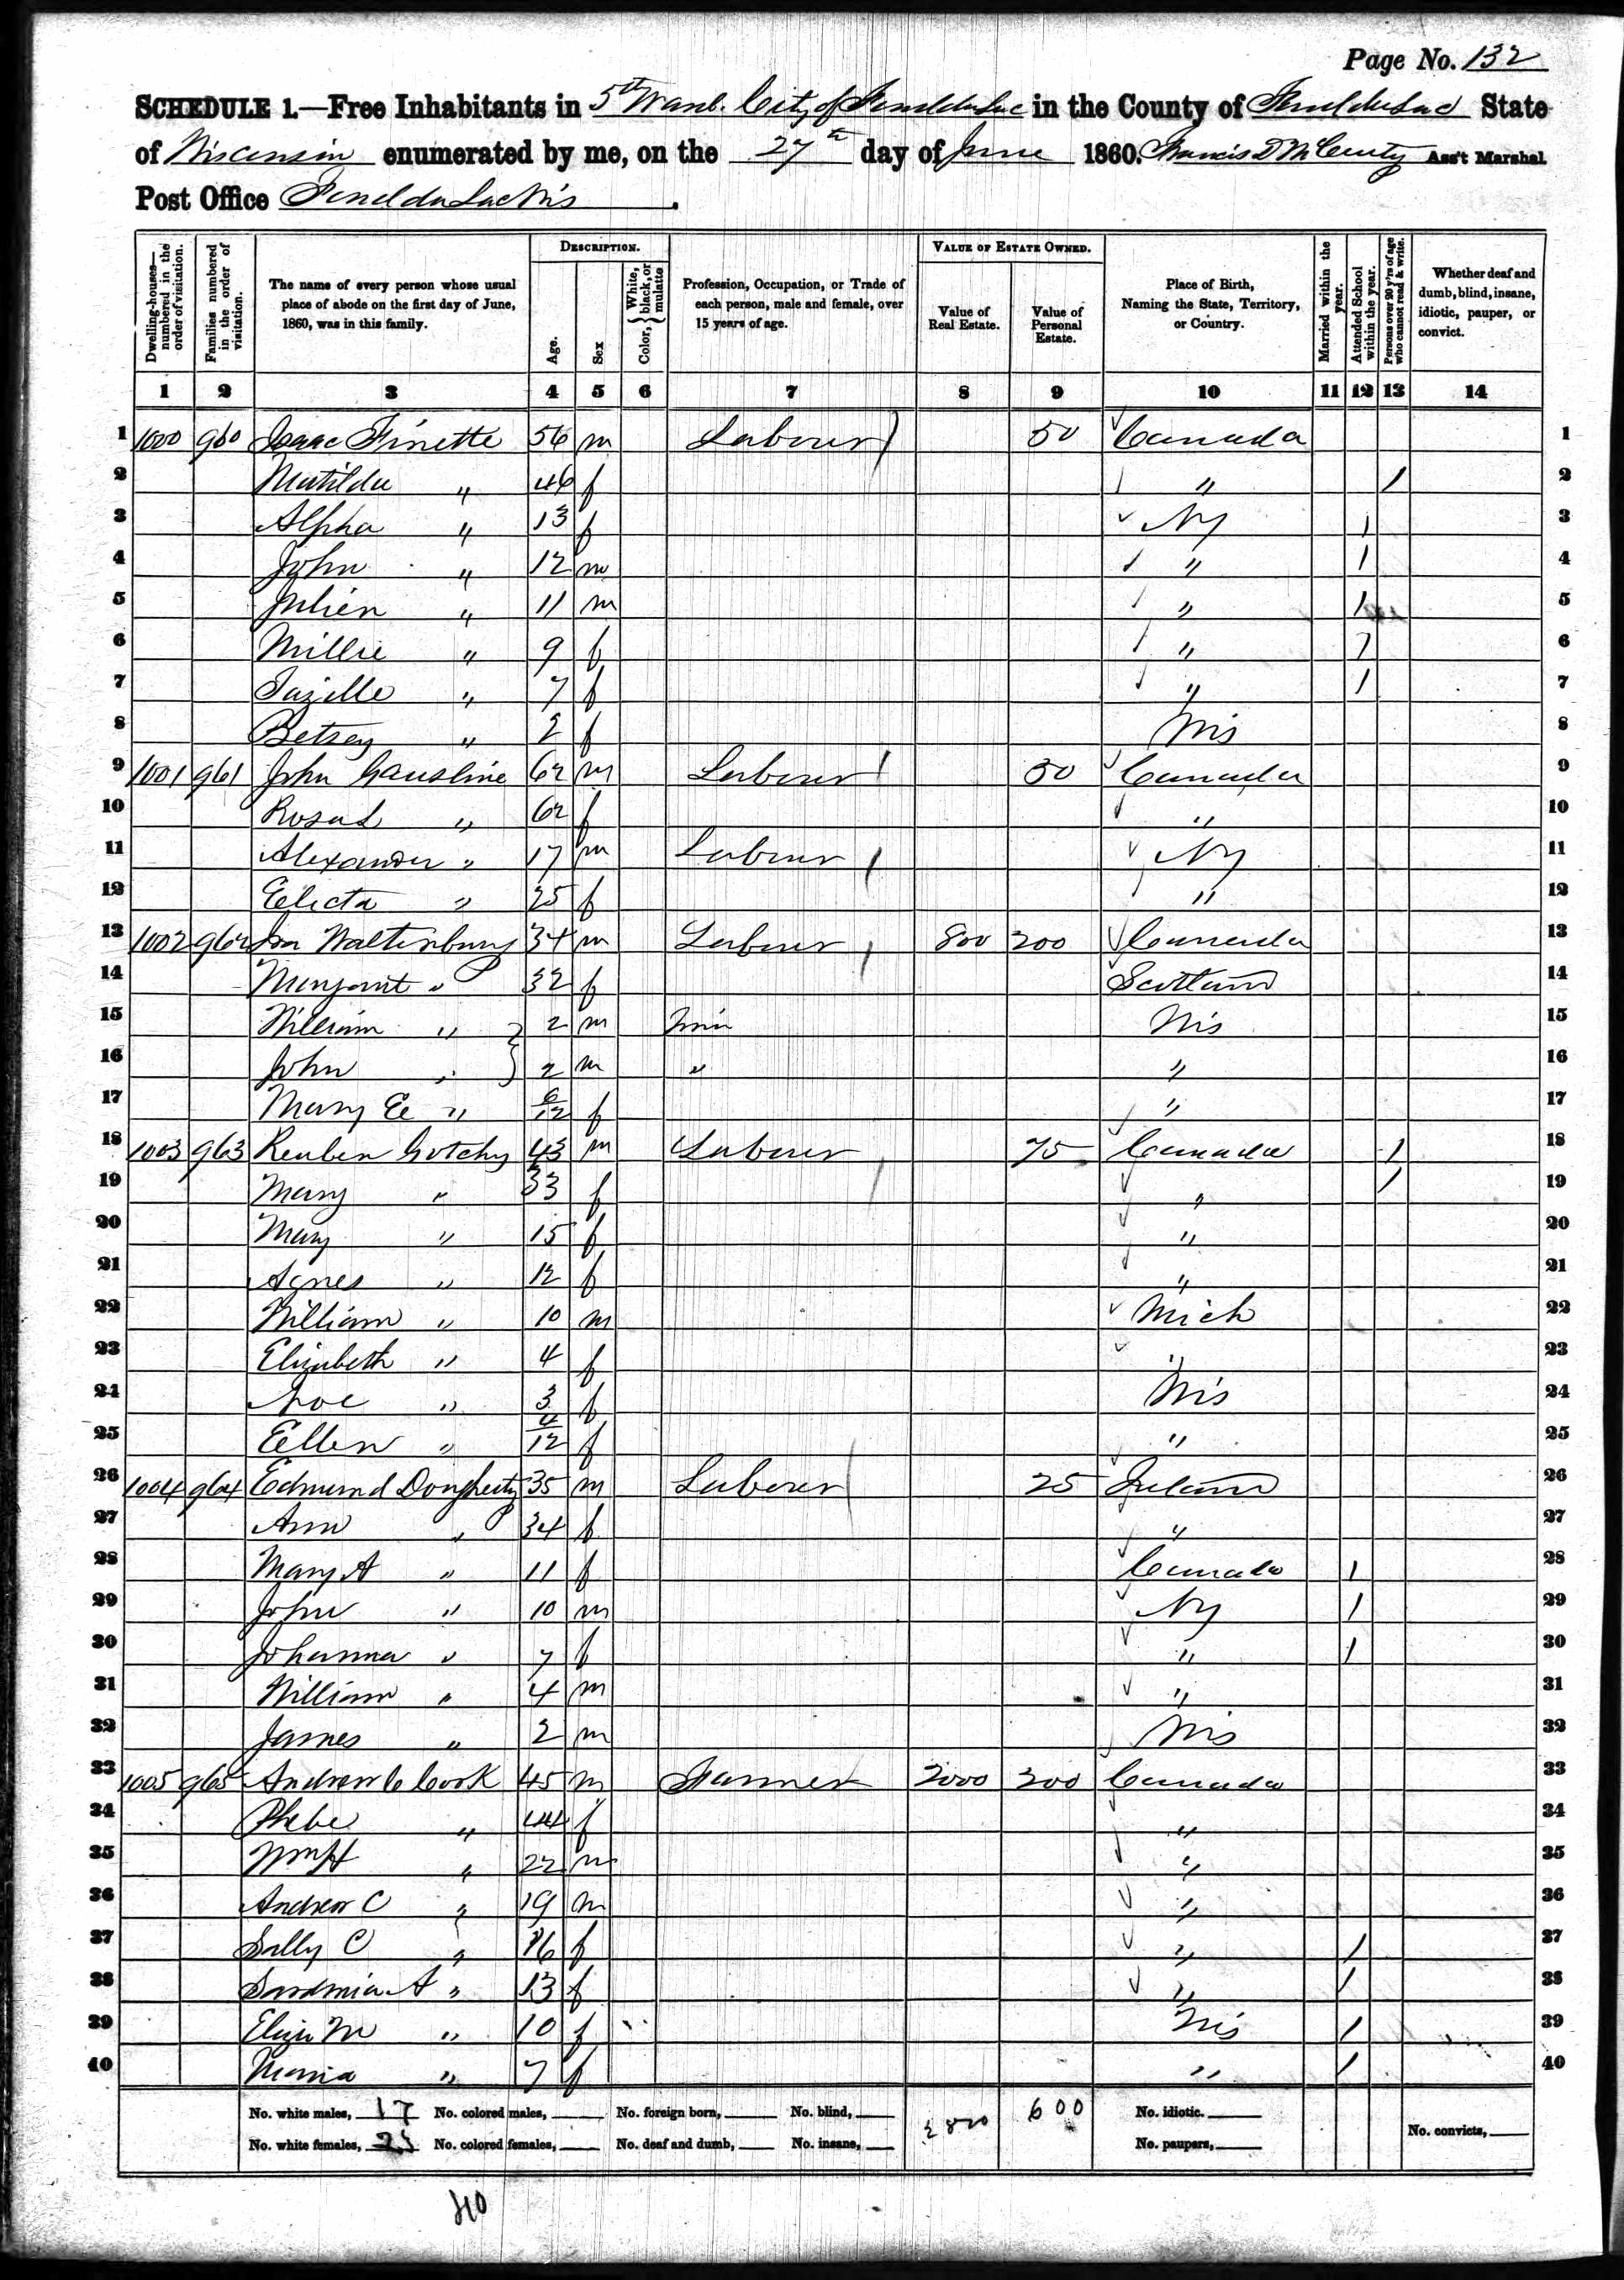 Page No. 132
SCHEDULE 1.—Free Inhabitants in 5th Ward. City of Fonddulac in the County of Fonddulac State
of Wisconsin enumerated by me, on the 27th day of June 1860. Francis D McCarty Ass't Marshal
Post Office Fonddulac Wis.
Dwelling-houses—numbered in the order of visitation.
Families numbered in the order of visitation.
The name of every person whose usual place of abode on the first day of June, 1860, was in this family.
DESCRIPTION.
Age.
Sex
Color, { White, black, or mulatto
Profession, Occupation, or Trade of each person, male and female, over 15 years of age.
VALUE OF ESTATE OWNED.
Value of Real Estate.
Value of Personal Estate.
Place of Birth, Naming the State, Territory, or Country.
Married within the year.
Attended School within the year.
Persons over 20 y'rs of age who cannot read & write.
Whether deaf and dumb, blind, insane, idiotic, pauper, or convict.
1 2 3 4 5 6 7 8 9 10 11 12 13 14
1 1000 960 Isaac Finette 56 m Laborer 50 Canada 1
2 Matilda " 46 f " / 2
3 Alpha " 13 f NY / 3
4 John " 12 m " / 4
5 Julien " 11 m " / 5
6 Millie " 9 f " / 6
7 " 7 f " / 7
8 Betsey " 2 f Wis 8
9 1001 961 John Gausline 62 m Laborer 50 Canada 9
10 Rosa L " 62 f " 10
11 Alexander " 17 m Laborer NY 11
12 Electa " 25 f " 12
13 1002 962 Ira Waltenbury 34 m Laborer 800 200 Canada 13
14 Margaret " 32 f Scotland 14
15 William " } 2 m Twin Wis 15
16 John " } 2 m " " 16
17 Mary E " 6/12 f " 17
18 1003 963 Reuben Gotchy 43 m Laborer 75 Canada / 18
19 Mary " 33 f " / 19
20 Mary " 15 f " 20
21 Agnes " 12 f " 21
22 William " 10 m Mich 22
23 Elizabeth " 4 f " 23
24 " 3 f Wis 24
25 Ellen " 4/12 f " 25
26 1004 964 Edmund Dougherty 35 m Laborer 25 Ireland 26
27 Ann " 34 f " 27
28 Mary A " 11 f Canada / 28
29 John " 10 m NY / 29
30 Johanna " 7 f " / 30
31 William " 4 m " 31
32 James " 2 m Wis 32
33 1005 965 Andrew C Cook 45 m Farmer 2000 200 Canada 33
34 Phebe " 44 f " 34
35 Wm H " 22 m " 35
36 Andrew C " 19 m " 36
37 Sally C " 16 f " / 37
38 A " 13 f " / 38
39 Eliza M " 10 f Wis / 39
40 Maria " 7 f " / 40
No. white males, 17 No. colored males, No. foreign born, No. blind, 2800 600 No. idiotic.
No. white females, 23 No. colored females, No. deaf and dumb, No. insane, No. paupers, No. convicts,
40